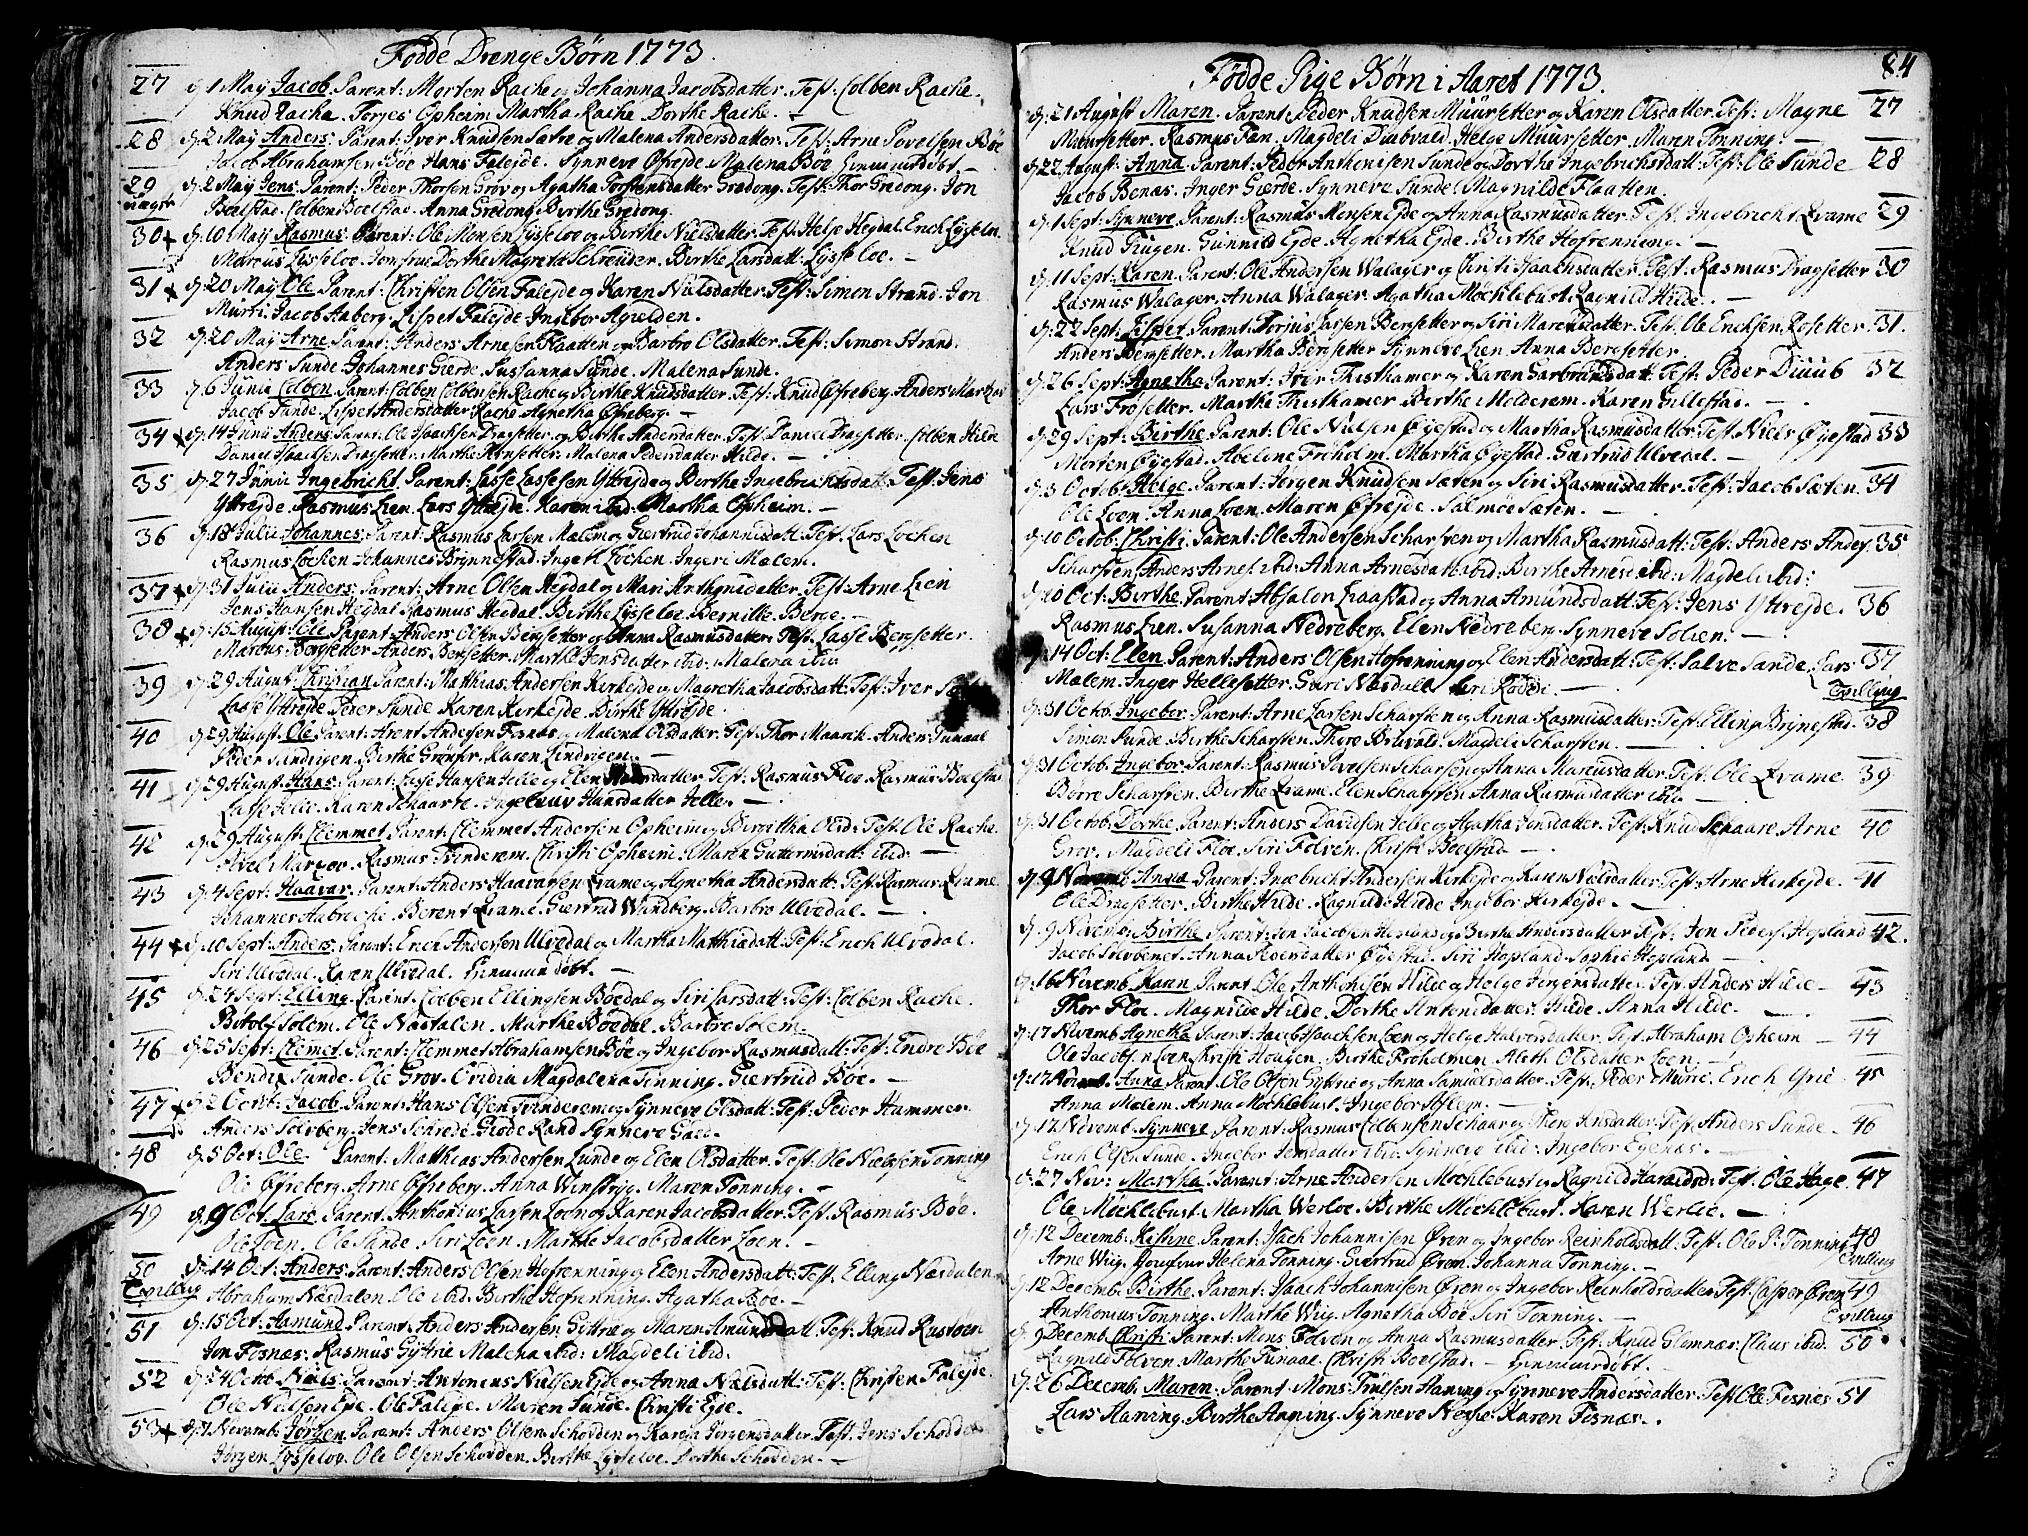 Fødde Drenge Børn 1773.
27 d: 1 May Jacob. Parent: Morten Rache og Johanna Jacobsdatter. Test: Colben Rache.
Knud Rache. Torjes Opheim. Martha Rache. Dorthe Rache.
28 d: 2 May Anders. Parent: Iver Knudsen Sætre og Malena Andersdatter. Test: Arne Povelsen Bøe
Jacob Abrahamsen Bøe. Hans Faleyde. Synneve Øfreyde. Malena Bøe.
29 d: 2 May Jens. Parent: Peder Thorsen Grov og Agatha Torstensdatter Gredong. Test: Thor Gredong. Jon
Boelstad. Colben Boelstad. Anna Gredong. Birthe Gredong.
30 d: 10 May Rasmus. Parent: Ole Monsen Lysseloe og Birthe Nielsdatter. Test: Helje Hegdal. Erich Lysselo.
Marcus Lysseloe. Jomfrue Dorthe Magreta Schreuder. Birthe Larsdatt: Lysseloe. —
31 d: 20 May Ole. Parent: Christen Olsen Faleyde og Karen Nielsdatter. Test: Simon Strand. Jon
Murri. Jacob Aaberg. Lispet Faleyde. Ingebor
32 d: 20 May Arne. Parent: Anders Arnesen Flaatten og Barbro Olsdatter. Test: Simon Strand.
Anders Sunde. Johannes Gierde. Susanna Sunde. Malena Sunde.
33 d: 6 Junii Colben. Parent: Colben Colbensen Rache og Birthe Knudsdatter. Test: Knud Øfreberg. Anders
Jacob Sunde. Lispet Andersdatter Rache. Agnetha Øfreberg. —
34 d: 14 Junii Anders. Parent: Ole Isaachsen Dragsetter og Birthe Andersdatter. Test: Daniel Dragsetter. Colben Hilde
Daniel Isaachsen Dragsetter. Marthe Monsetter. Malena Pedersdatter Hilde. —
35 d: 27 Junii Ingebricht. Parent: Lasse Lassesen Yttreyde og Birthe Ingebrichtsdatt. Test: Jens
Yttreyde. Rasmus Lien. Lars Yttreyde. Karen ibid. Martha Opheim. —
36 d: 18 Julii Johannes. Parent: Rasmus Larsen Malem og Giertrud Johannisdatt: Test: Lars Løchen
Rasmus Løchen. Johannes Brynnestad. Ingert Løchen. Ingeri Malem.
37 d: 31 Julii Anders. Parent: Arne Olsen Hegdal og Mari Anthonisdatter. Test: Arne Lien
Jens Hansen Hegdal. Rasmus Hegdal. Birthe Lysseloe. Pernille Berge. —
38 d: 15 August: Ole. Parent: Anders Olsen Bergsetter og Anna Rasmusdatter. Test: Lasse Bergsetter.
Marcus Bergsetter. Anders Bergsetter. Marthe Jensdatter ibid: Malena ibid
39 d: 29 August: Christian. Parent: Matthias Andersen Kirkeyde og Magretha Jacobsdatt: Test: Iver
Lasse Yttreyde. Peder Sunde. Karen Kirkeyde. Birthe Yttreyde.
40 d: 29 August: Ole. Parent: Arent Andersen Fosnes og Malena Olsdatter. Test: Thor Maarch. Anders Tunaal
Peder Sindrigen. Birthe Karen Sindrigen.
41 d: 29 August: Hans. Parent: Lasse Hansen Jelle og Elen datter. Test: Rasmus Floe. Rasmus Boelstad
Lasse Jelle. Karen Schaare. Hansdatter Jelle. —
42 d: 29 August: Clemmet. Parent: Clemmet Andersen Opheim og Birgitha Olsd: Test: Ole Rache.
Rasmus Tvinderem. Christi Opheim. Maren Guttormsdatt: ibid: —
43 d: 4 Sept: Haavar. Parent: Anders Haavarsen Qvame og Agnetha Andersdatt: Test: Rasmus Qvame
Johannes Aabreche. Berent Qvame. Giertrud Wandberg. Barbro Ulvedal. —
44 d: 10 Sept: Anders. Parent: Erich Andersen Ulvedal og Martha Matthisdatt: Test: Erich Ulvedal.
Siri Ulvedal. Karen Ulvedal. døbt. —
45 d: 24 Sept: Elling. Parent: Colben Ellingsen Bøedal og Siri Larsdatt: Test: Colben Rache.
Solem. Ole Næsdalen. Marthe Bøedal. Barbro Solem.
46 d: 25 Sept: Clemet. Parent: Clemmet Abrahamsen Bøe og Ingebor Rasmusdatt: Test: Endre Bøe
Bendix Sunde. Ole Grov. Ovidia Magdalena Tønning. Giertrud Bøe. —
47 d: 2 Octob: Jacob. Parent: Hans Olsen Tvinderem og Synneve Olsdatt: Test: Peder Hammer.
Anders Solvberg. Jens Schrede. Giøde Rand. Synneve
48 d: 5 Oct: Ole. Parent: Matthias Andersen Lunde og Elen Olsdatter. Test: Ole Nielsen Tonning
Ole Øfreberg. Arne Øfreberg. Anna Maren Tonning. —
49 d: 9 Oct. Lars. Parent: Anthonius Larsen Loen og Karen Jacobsdatter. Test: Rasmus Bøe.
Ole Loen. Ole Sande. Siri Loen. Marthe Jacobsdatter Loen. —
50 d: 14 Oct: Anders. Parent: Anders Olsen Hofrenning og Elen Andersdatt: Test: Elling Næsdalen
Tvilling Abraham Næsdalen. Ole ibid. Birthe Hofrenning. Agatha Bøe. —
51 d: 15 Oct: Aamund. Parent: Anders Andersen Gyttrie og Maren Amundsdatt. Test: Knud Rustøen
Jon Fosnæs. Rasmus Gyttrie. Malena ibid: Magdeli ibid.
52 d: 24 Octob Niels. Parent: Antonius Nielsen Eyde og Anna Nielsdatt: Test: Christen Faleyde.
Ole Nielsen Eyde. Ole Faleyde. Maren Sunde. Christi Eyde.
53 d: 7 Novemb: Jørgen. Parent: Anders Olsen Schodden og Karen Jørgensdatter. Test: Jens Schodden
Jørgen Lysseloe. Ole Olsen Schodden. Birthe Lysseloe. Dorthe Schodden. —
84
Fødde Pige Børn i Aaret 1773.
d: 21 August Maren. Parent: Peder Knudsen Muursetter og Karen Olsdatter. Test: Magne 27
Muursetter. Rasmus Fan. Magdeli Helge Muursetter. Maren Tonning. —
d: 22 August: Anna. Parent: Peder Anthonisen Sunde og Dorthe Ingebrichtsdatt: Test: Ole Sunde 28
Jacob Benæs. Inger Gierde. Synneve Sunde. Magnilde Flaatten.
d: 1 Sept: Synneve. Parent: Rasmus Monsen Eyde og Anna Rasmusdatter. Test: Ingebricht Qvame 29
Knud Gunnild Eyde. Agnetha Eyde. Birthe Hofrenning. —
d: 11 Sept: Karen. Parent: Ole Andersen Walager og Christi Isaachsdatter. Test: Rasmus Dragsetter 30
Rasmus Walager. Anna Walager. Agatha Mochlebust. Ragnild Hilde. —
d: 22 Sept: Lispet. Parent: Torjus Larsen Bergsetter og Siri Marensdatter. Test: Ole Erichsen Rosetter. 31
Anders Bergsetter. Martha Bergsetter. Synneve Lien. Anna Bergsetter.
d: 26 Sept: Agnetha. Parent: Iver Thisthamer og Karen Garbrandsdatt: Test: Peder Diuub 32
Lars Frøsetter. Marthe Thisthamer. Birthe Melderem. Karen Gillestad. —
d: 29 Sept: Birthe. Parent: Ole Nielsen Øyestad og Martha Rasmusdatter. Test: Niels Øyestad 33
Morten Øyestad. Abelone Froholm. Martha Øyestad. Giertrud Ulvedal. —
d: 3 Octob: Helge. Parent: Jørgen Knudsen Sæten og Siri Rasmusdatter. Test: Jacob Sæten 34
Ole Loen. Anna Loen. Maren Øfreyde. Salmøe Sæten. —
d: 10 Octob. Christi. Parent: Ole Andersen Scharsten og Martha Rasmusdatt: Test: Anders Anders 35
Scharsten. Anders Arnes. ibid: Anna Arnesdatt ibid: Birthe Arnesd ibid: Magdeli ibid:
d: 10 Oct: Birthe. Parent: Absalon Qvastad og Anna Amundsdatt: Test: Jens Yttreyde. 36
Rasmus Lien. Susanna Nedreberg. Elen Nedreberg. Synneve Solien. —
d: 14 Oct: Elen. Parent: Anders Olsen Hofrenning og Elen Andersdatt: Test: Salve Sande. Lars 37
Malem. Inger Hellesetter. Guri Næsdal. Siri — Tvilling
d: 31 Octob. Ingebor. Parent: Arne Larsen Scharsten og Anna Rasmusdatter. Test: Elling Brynestad. 38
Simon Sunde. Birthe Scharsten. Thore Magdeli Scharsten. —
d: 31 Octob. Ingebor. Parent: Rasmus Povelsen Scharsten og Anna Marcusdatter. Test: Ole Qvame. 39
Børre Scharsten. Birthe Qvame. Elen Scharsten. Anna Rasmusdatter ibid. —
d: 31 Octob. Dorthe. Parent: Anders Davidsen Jelle og Agatha Jonsdatter. Test: Knud Schaare. Arne 40
Grov. Magdeli Floe. Siri Folven. Christi Boelstad. —
d: 9 Novemb Anna. Parent: Ingebricht Andersen Kirkeyde og Karen Nielsdatter. Test: Arne Kirkeyde. 41
Ole Dragsetter. Birthe Hilde. Ragnild Hilde. Ingebor Kirkeyde. —
d: 9 Novemb. Birthe. Parent: Jon Jacobsen Hopland og Birthe Andersdatter. Test: Jon Peders. Hopland 42.
Jacob Anna Pedersdatter Øyestad. Siri Hopland. Sophie Hopland —
d: 16 Novemb. Karen. Parent: Ole Anthonisen Hilde og Helge Jørgensdatter. Test: Anders Hilde — 43
Thor Floe. Magnilde Hilde. Dorthe Antonisdatter Hilde. Anna Hilde. —
d: 17 Novemb. Agnetha. Parent: Jacob Isaachsen Loen og Helge Halvorsdatter. Test: Abraham Opheim — 44
Ole Jacobsen Loen. Christi Hougen. Birthe Froholmen. Aleth Olsdatter Loen. —
d: 17 Novemb. Anna. Parent: Ole Olsen Gyttrie og Anna Samuelsdatter. Test: Peder Murie. Erich 45
Anna Malem. Anna Mochlebust. Ingebor —
d: 17 Novemb. Synneve. Parent: Rasmus Colbensen Schaar og Thore Arnsdatter. Test: Anders Sunde. 46
Erich Olsen Sunde. Ingebor Jensdatter ibid. Synneve ibid: Ingebor Egenæs. —
d: 27 Nov: Martha. Parent: Arne Andersen Mochlebust og Ragnild Haraldsd: Test: Ole Hage 47
Ole Mochlebust. Martha Werloe. Birthe Mochlebust. Karen Werloe. —
d: 12 Decemb. Kistine. Parent: Isach Johannisen Øren og Ingebor Reinholdsdatt: Test: Ole P. Tonning 48
Arne Wiig. Jomfrue Helena Tonning. Giertrud Øren. Johanna Tonning. — Tvilling
d: 12 Decemb. Birthe. Parent: Isaach Johannisen Øren og Ingebor Reinholdsdatter. Test: Casper Øren 49
Anthonius Tonning. Marthe Wiig. Agnetha Bøe. Siri Tonning. — Tvilling
d: 9 Decemb. Christi. Parent: Mons Folven og Anna Rasmusdatter. Test: Knud Glomnæs. Claus ibid. 50
Ragnild Folven. Marthe Tunaal. Christi Boelstad. — døbt. —
d: 26 Decemb. Maren. Parent: Mons Truelsen Haning og Synneve Andersdatter. Test Ole Fosnæs 51
Lars Aaning. Birthe Aaning. Synneve Nesse. Karen Fosnæs. —